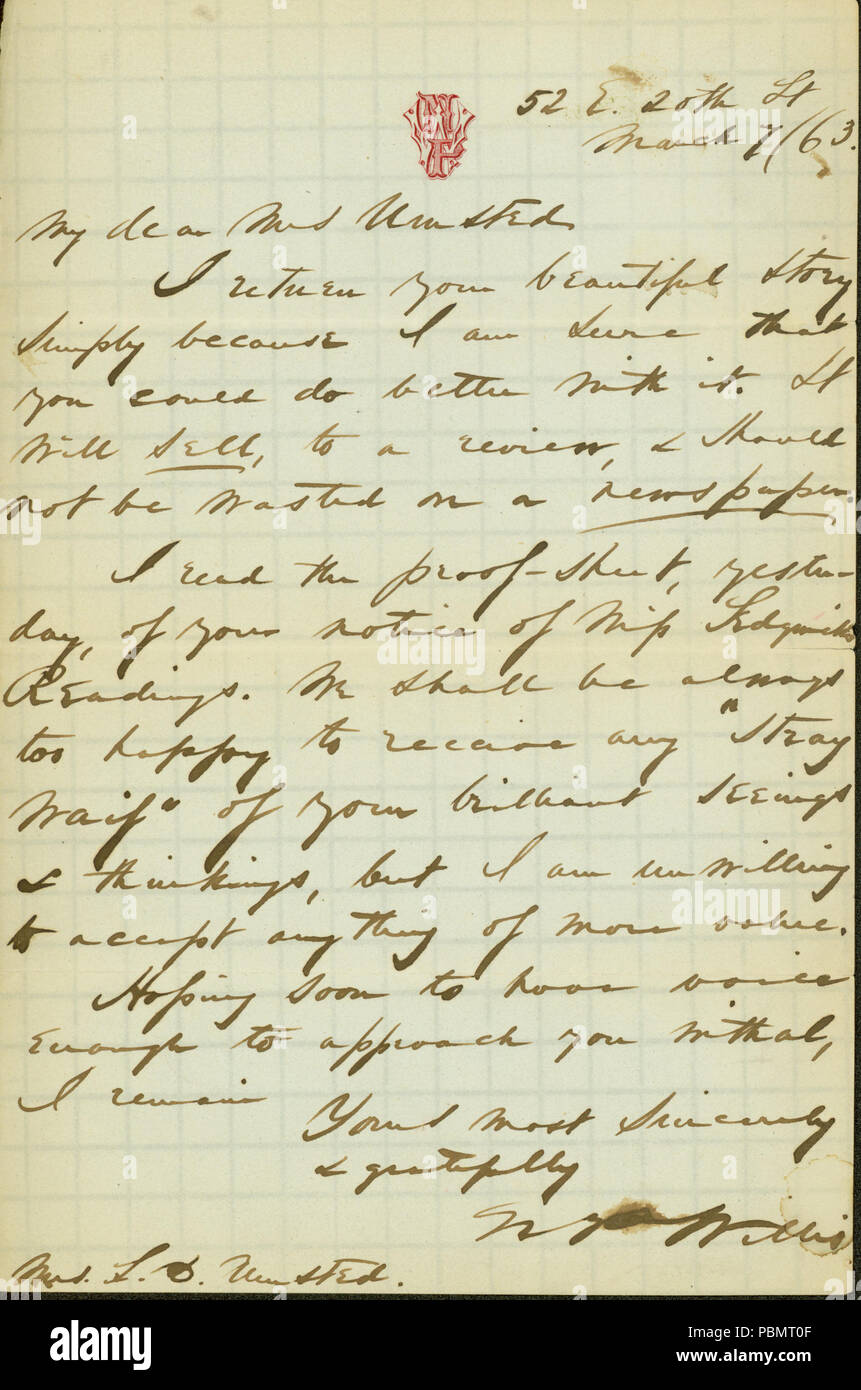 52 E. 20th St
March 7/63.
My dear Mrs Umsted
I return your beautiful story
simply because I am sure that
you could do better with it. It
will sell, to a review, & should
not be wasted on a newspaper.
I read the proof-sheet, yester-
day, of your notice of Miss Sedgwick's
Readings. We shall be always
too happy to receive any "stray
waif" of your brilliant seeings
& thinkings, but I am unwilling
to accept anything of more value.
Hoping soon to have voice
enough to approach you withal,
I remain
Yours most sincerely
& gratefully
Willis
Mrs. L. D. Umsted.
alamy
Image ID: PBMT0F
www.alamy.com